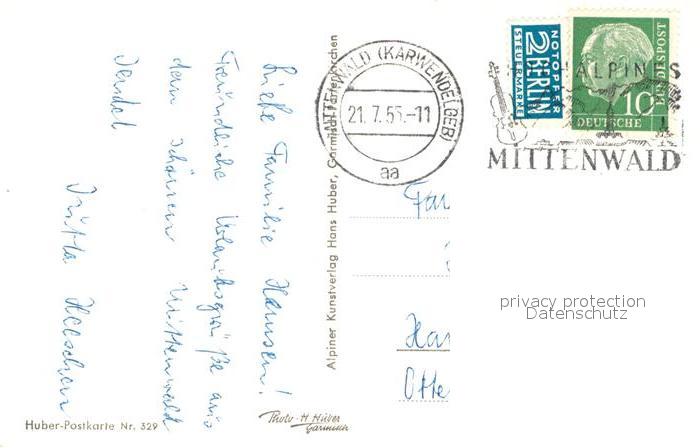 Liebe Familie Hansen!
Freundliche Urlaubsgrüße aus
dem schönen Mittenwald
sendet
Jutta Heeschen
Alpiner Kunstverlag Hans Huber, Garmisch-Partenkirchen
Huber-Postkarte Nr. 329
Photo-H. Huber
Garmisch
MITTENWALD (KARWENDELGEB)
21.7.55.-11
aa
NOTOPFER
2 BERLIN
STEUERMARKE
BUNDESPOST
10
DEUTSCHE
HOCHALPINES
MITTENWALD
Fam
Han
Otte
privacy protection
Datenschutz